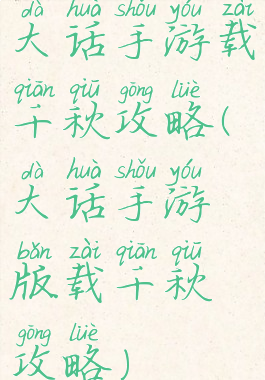 dà huà shǒu yóu zài
大话手游载
qiān qiū gōng lüè
千秋攻略(
dà huà shǒu yóu
大话手游
bǎn zài qiān qiū
版载千秋
gōng lüè
攻略)